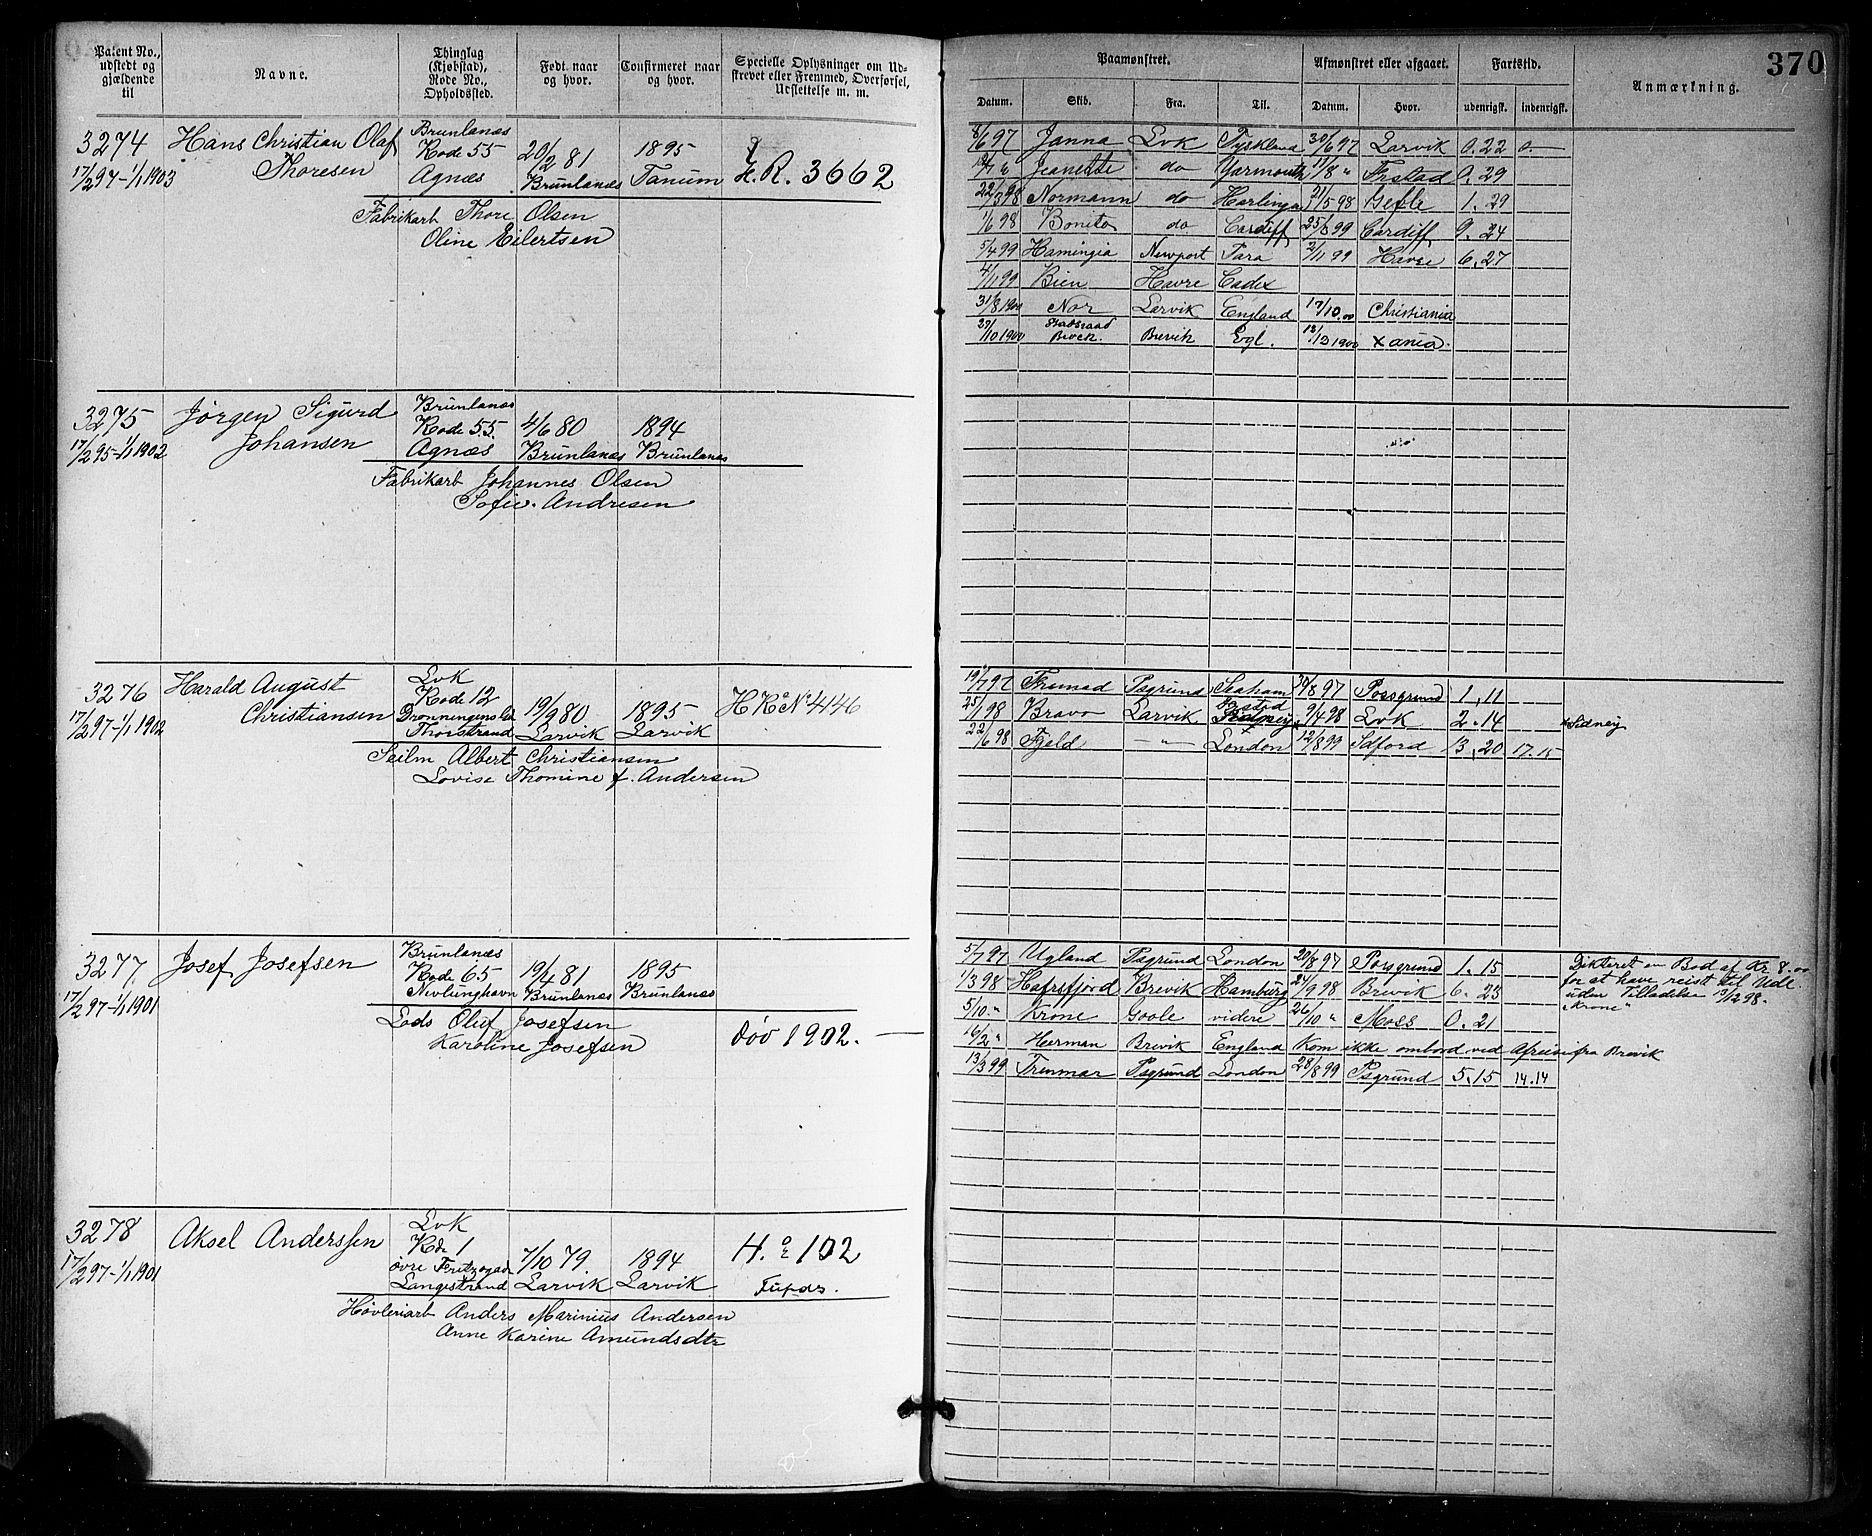 Patent No., udstedt og gjældende til
Navne.
Thinglag (Kjøbstad), Rode No., Opholdssted.
Født naar og hvor.
Confirmeret naar og hvor.
Specielle Oplysninger om Udskrevet eller Fremmed, Overførsel, Udslettelse m. m.
3274
17/2 97-1/1 1903
Hans Christian Olaf
Thoresen
Brunlanæs
Rode 55
Agnæs
20/2 81
Brunlanæs
1895
Tanum
H.R. 3662
Fabrikarb Thore Olsen
Oline Eilertsen
3275
17/2 95-1/1 1902
Jørgen Sigurd
Johansen
Brunlanæs
Rode 55.
Agnæs
4/6 80
Brunlanæs
1894
Brunlanæs
Fabrikarb Johannes Olsen
Sofie Andresen
3276
17/2 97-1/1 1902
Harald August
Christiansen
Lvk
Rode 12
Thorstrand
19/9 80
Larvik
1895
Larvik
Seilm Albert Christiansen
Lovise Thomine f. Andersen
3277
17/2 97-1/1 1901
Josef Josefsen
Brunlanæs
Rode 65
Nevlunghavn
19/4 81
Brunlanæs
1895
Brunlanæs
Lods Oluf Josefsen
Karoline Josefsen
Død 1902.
3278
17/2 97-1/1 1901
Aksel Anderssen
Lvk
Rde 1
Langestrand
7/10 79
Larvik
1894
Larvik
H. 102
Høvleriarb Anders Marinius Andersen
Anne Karine Amundsdtr
370
Paamønstret.
Afmønstret eller afgaaet.
Fartstid.
Anmærkning.
Datum.
Skib.
Fra.
Til.
Datum.
Hvor.
udenrigsk.
indenrigsk.
8/6 97 Janna Lvk Tyskland 30/6 97 Larvik 0.22 0.-
Jeanette do Yarmouth 11/8 " Frstad 0.29
22/3 98 Normann do Harlingen 21/5 98 Gefle 1.29
1/6 98 Bonito do Cardiff Cardiff 9.24
5/4 99 Hamingia Newport Para 2/11 99 Havre 6.27
4/11 99 Bien Havre Cadix
31/8 1900 Nor Larvik England 17/10.00 Christiania
27/10 1900 Statsraad Broch. Brevik Egl. Xania.
19/7 97 Fremad Psgrund Seaham Porsgrund 1.11
25/1 98 Bravo Larvik 9/4 98 Lvk 2.14 Sidney
22/6 98 Fjeld — " — London 12/8 99 13.20 17.15
5/7 97 Ugland Psgrund London 20/8 97 Porsgrund 1.15
Dikteret en Bod af Kr 8.00
for at have reist til Udl.
uden Tilladelse
1/3 98 Hafrsfjord Brevik Hamburg 24/9 98 Brevik 6.23
5/10 " Krone Goole videre 26/10 " Moss 0.21 "Krone"
Herman Brevik England Kom ikke ombord ved Afreise fra Brevik
13/3 99 Trenmar Psgrund London 28/8 99 Psgrund 5.15 14.14